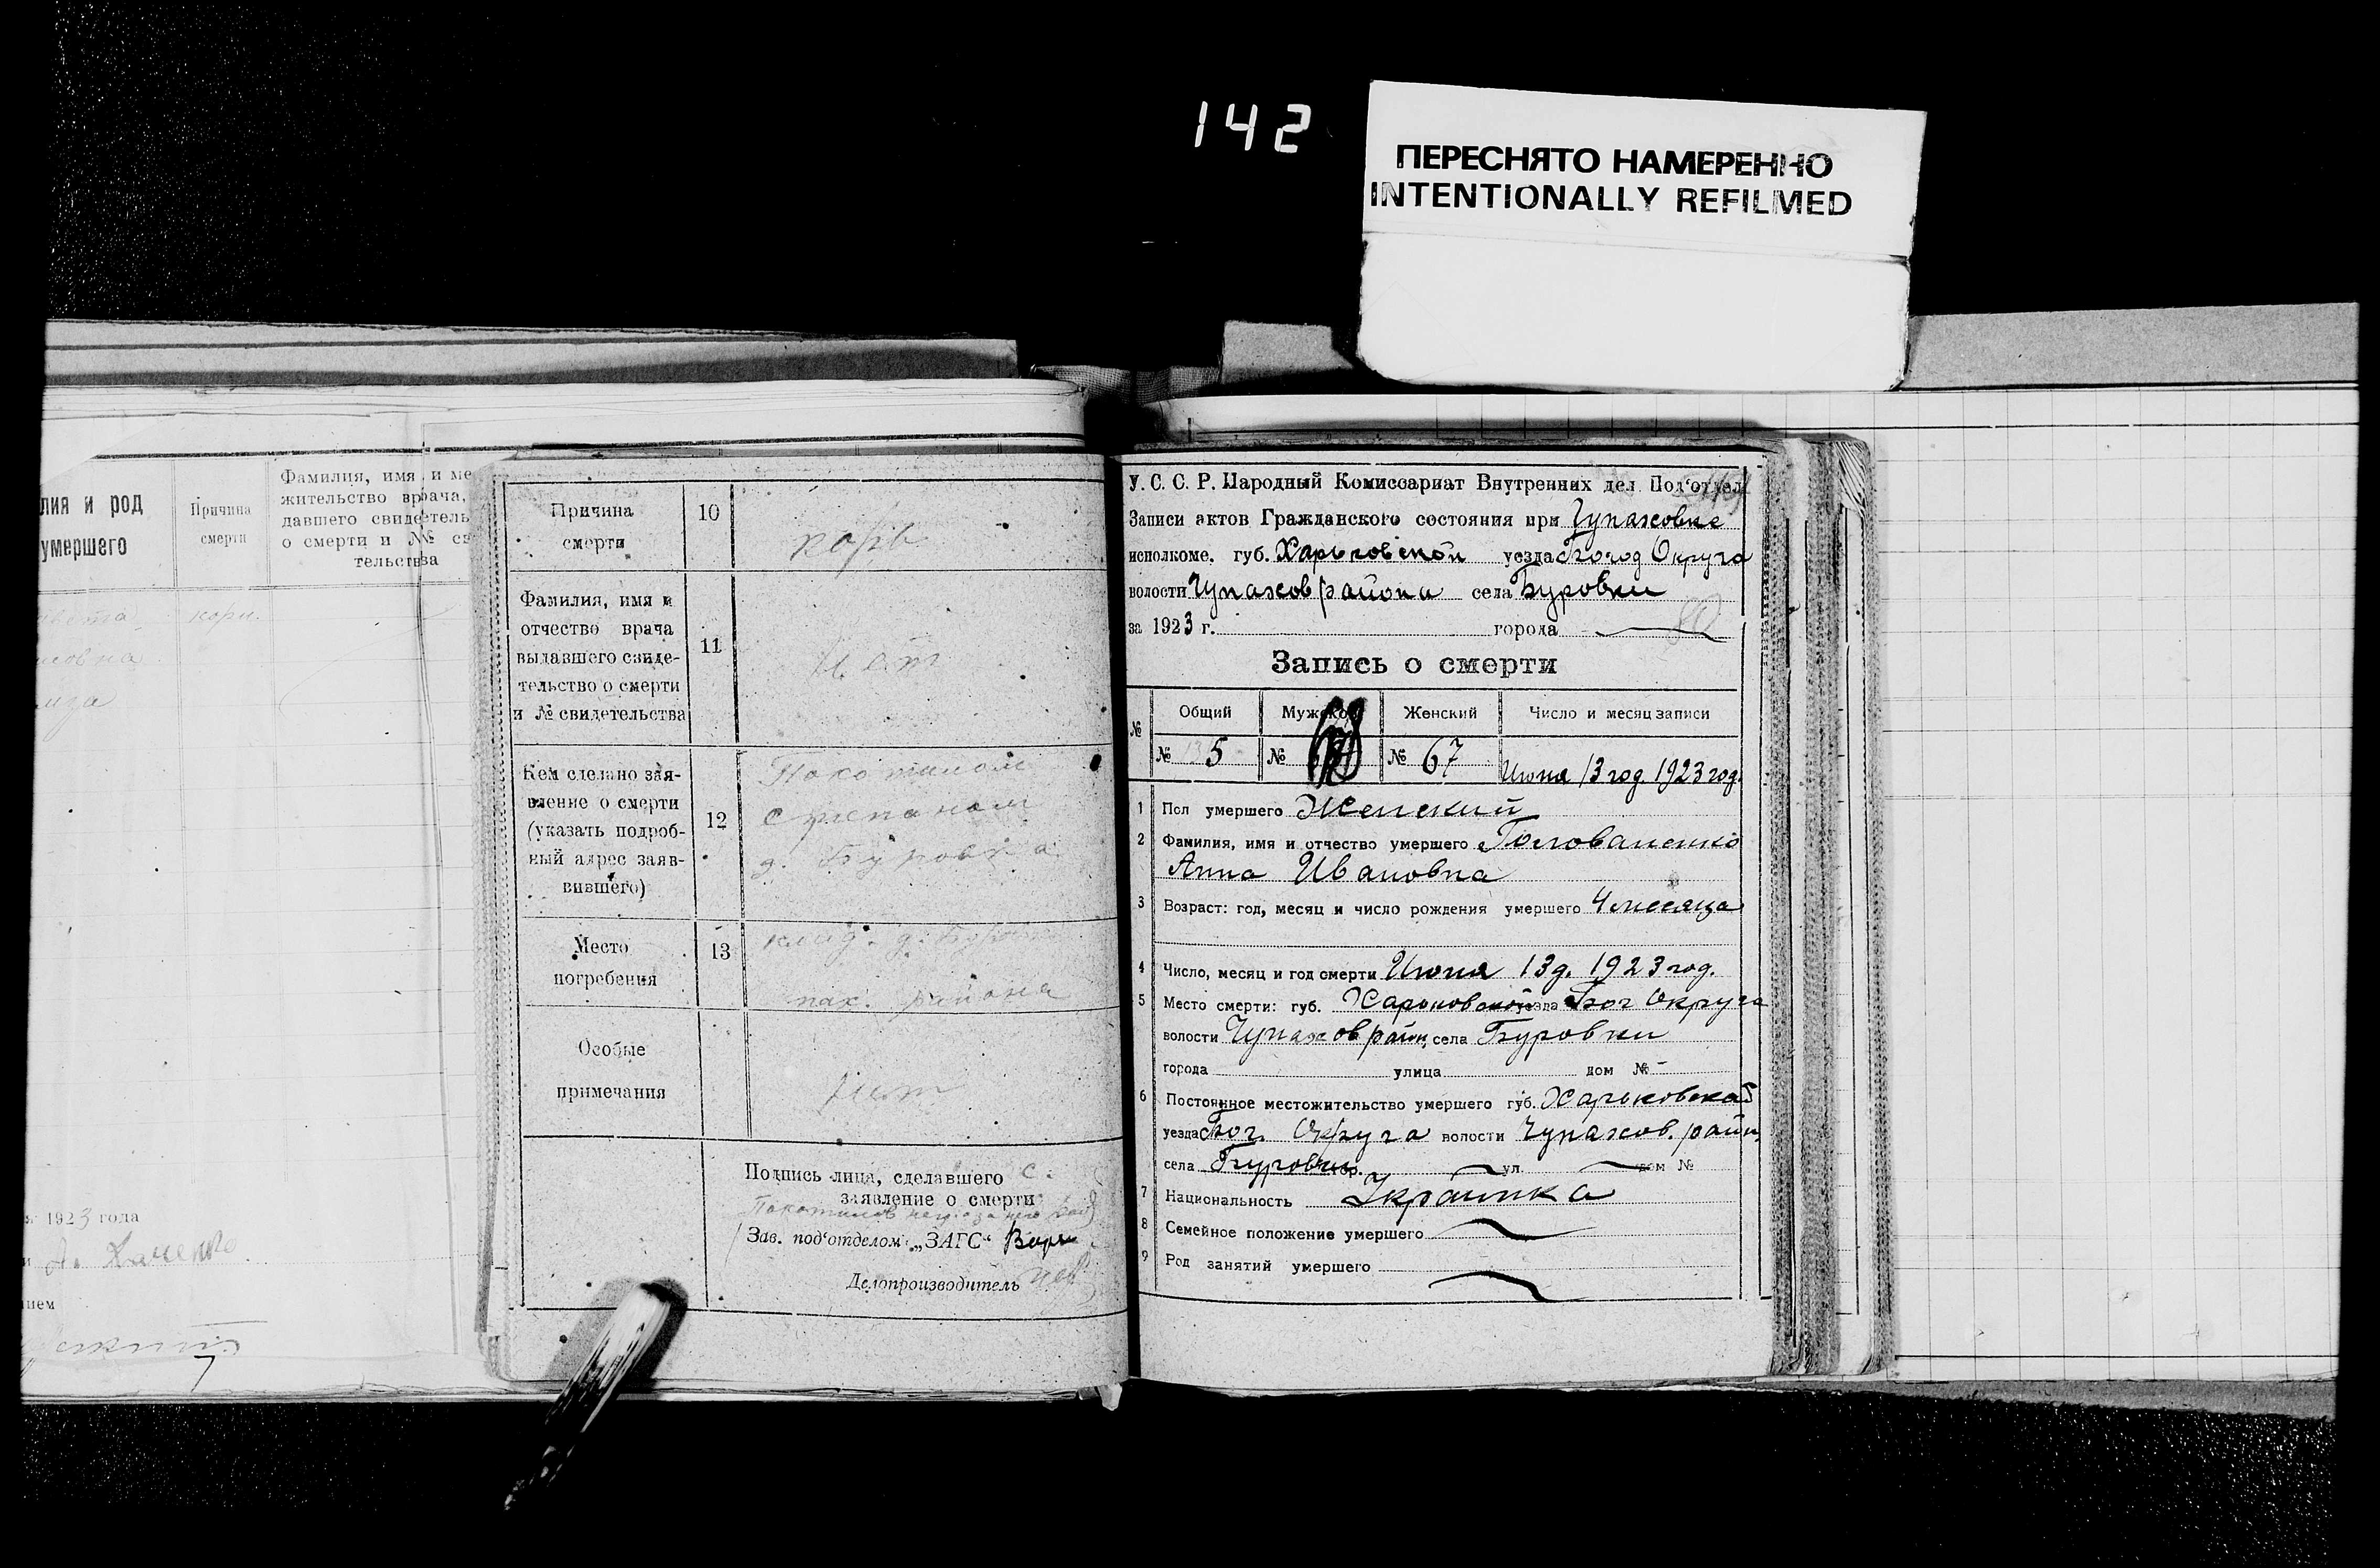 142
ПЕРЕСНЯТО НАМЕРЕННО
INTENTIONALLY REFILMED
лия и род
умершего
Причина
смерти
Фамилия, имя и ме
жительство врача,
давшего свидетель
о смерти и № св
тельства
кори.
1923 года
нием
7
Причина
смерти
10
корь
Фамилия, имя и
отчество врача
выдавшего свиде-
тельство о смерти
и № свидетельства
11
нет
Кем сделано зая-
вление о смерти
(указать подроб-
ный адрес заяв-
вившего)
12
Покотилом
Степаном
д. Буровка
Место
погребения
13
клад. д. Буровки
района
Особые
примечания
нет
Подпись лица, сделавшего С.
заявление о смерти
Покотилов
Зав. под'отделом „ЗАГС“
Делопроизводитель
У. С. С. Р. Народный Комиссариат Внутренних дел Под'отдел
Записи актов Гражданского состояния при Чупаховке
исполкоме, губ. Харьковской уезда Богод Округа
волости Чупахов района села Буровки
за 1923 г. города
Запись о смерти
№ Общий Мужской Женский Число и месяц записи
№ 5 № № 67 Июня 13 год 1923 год.
1 Пол умершего Женский
2 Фамилия, имя и отчество умершего Голованенко
Анна Ивановна
3 Возраст: год, месяц и число рождения умершего 4 месяца
4 Число, месяц и год смерти Июня 13 д. 1923 год.
5 Место смерти: губ. Харьковской уезда Бог Округа
волости Чупахов район, села Буровки
города улица дом № -
6 Постоянное местожительство умершего губ. Харьковской
уезда Бог. Округа волости Чупахов. район,
села Буровки гор. ул. дом №
7 Национальность Украинка
8 Семейное положение умершего
9 Род занятий умершего